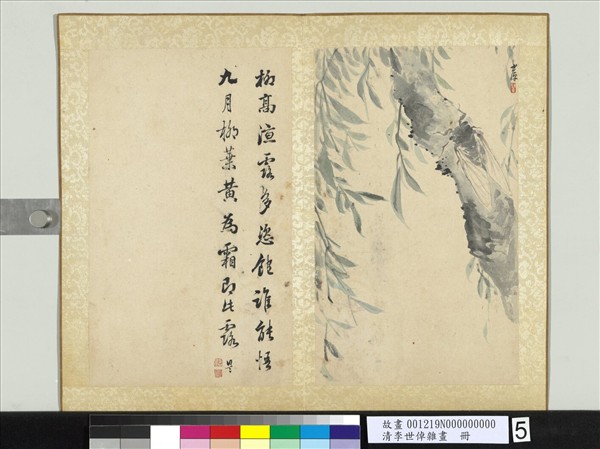 柳高湑露多恣飽誰能悟
九月柳葉黃為霜即此露
故畫 001219N000000000
清李世倬雜畫 冊
5